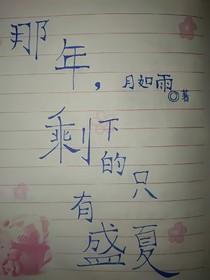 那年，
月如雨
◎著
剩下的只
有盛夏